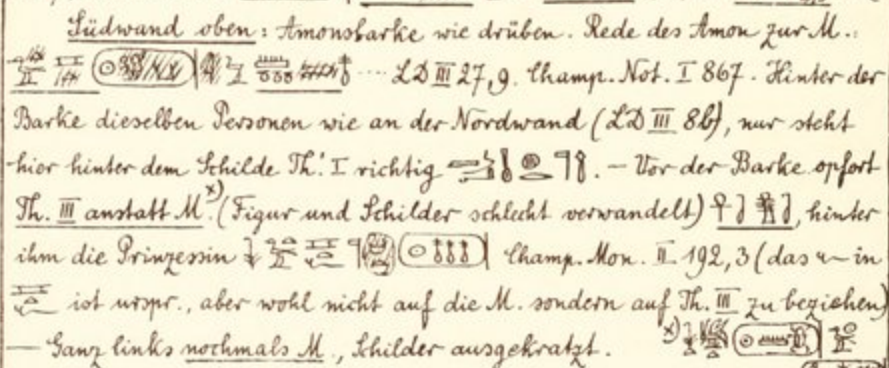 Südwand oben: Amonsbarke wie drüben. Rede des Amon zur M.:
.... LD III 27,9. Champ. Not. I 867. Hinter der
Barke dieselben Personen wie an der Nordwand (LD III 8b), nur steht
hier hinter dem Schilde Th. I richtig . — Vor der Barke opfert
Th. III anstatt M. x) (Figur und Schilder schlecht verwandelt) , hinter
ihm die Prinzessin Champ. Mon. II 192,3 (das in
ist urspr., aber wohl nicht auf die M. sondern auf Th. III zu beziehen)
— Ganz links nochmals M., Schilder ausgekratzt. x)